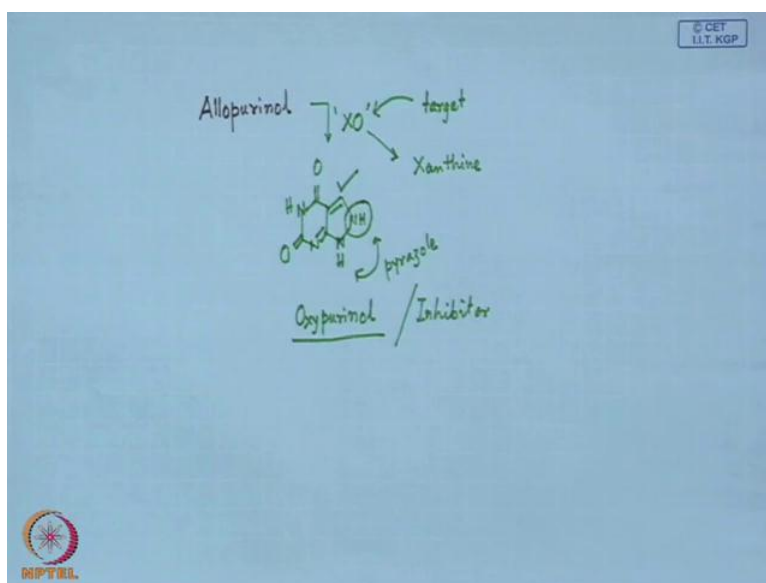 © CET
I.I.T. KGP
Allopurinol 'XO' target
Xanthine
O
H N NH
O N N
H
pyrazole
Oxypurinol / Inhibitor
NPTEL